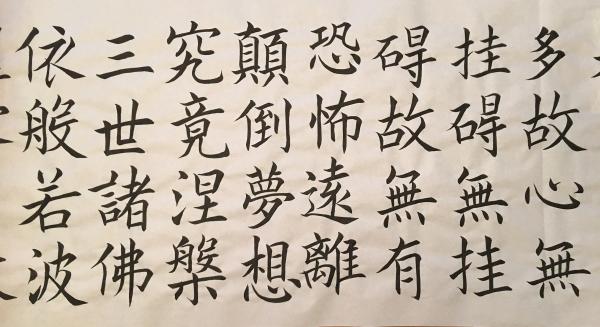 多故心無
挂碍無挂
碍故無有
恐怖遠離
顛倒夢想
究竟涅槃
三世諸佛
依般若波